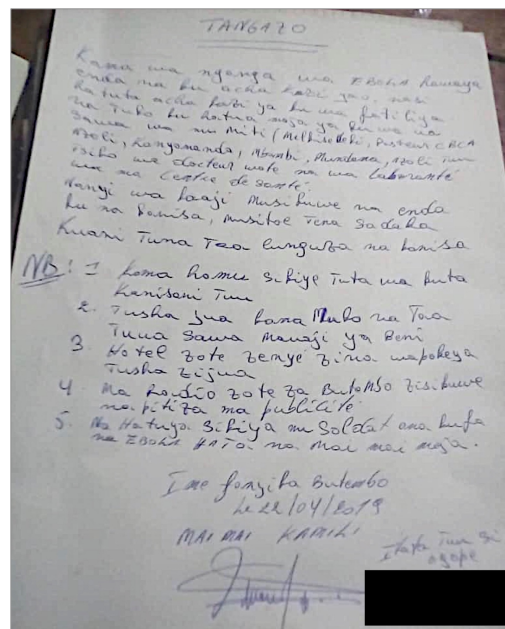 TANGAZO
Kama wa nganga wa EBOLA hawaya
enda na ku acha kazi yao, nasi
hatuta acha kazi ya ku wa fatiliya
na Tuko ku hatua moja ya ku wa uwa
Sawa wa mu Miti (Melkisedeki, Pasteur CBCA
Azoli, Kanyamanda, Mbambi, Mundama, Azoli Tun
isiho wa docteur wote na wa laborante
wa ma Centre de Santé.
Nanyi wa haaji Musikuwe na enda
ku na kanisa, musitoe Tena Sadaka
Kuani Tuna Taa Cunguza na kanisa
NB: 1 Kama hamu Sikiye Tuta wa kuta
Kanisani Tuu
2. Tusha jua kama Muko na Taa
Tuua Sawa Mauaji ya Beni
3. Hotel zote zenye zina wapokeya
Tusha zijua
4 Ma Radio zote za Butembo zisikuwe
na pitiza ma publicité
5. Na Hatuya Sikiya mu Soldat ana kufa
na EBOLA HATA na Mai mai moja.
Ime fanyika Butembo
Le 22/04/2019
MAI MAI KAMILI
Itafa Tuu Si
ogope